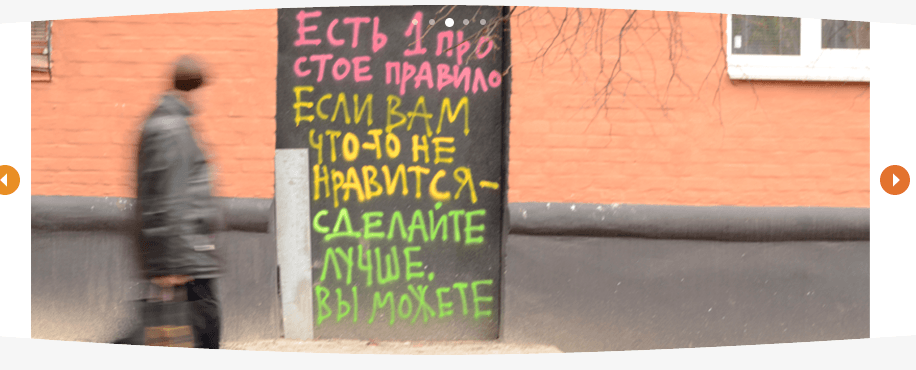 Есть 1 про
стое правило
Если вам
что-то не
нравится-
сделайте
лучше.
вы можете